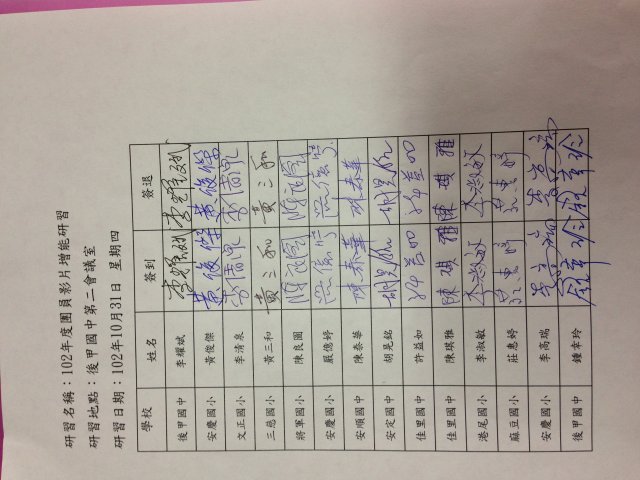 研習名稱：102年度團員影片增能研習
研習地點：後甲國中第二會議室
研習日期：102年10月31日 星期四
學校 姓名 簽到 簽退
後甲國中 李耀斌 李耀斌 李耀斌
安慶國小 黃俊傑 黃俊傑 黃俊傑
文正國小 李清泉 李清泉 李清泉
三慈國小 黃三和 黃三和 黃三和
將軍國小 陳良國 陳良國 陳良國
安慶國小 嚴偲婷
安順國中 陳泰華 陳泰華 陳泰華
安定國中 胡晃銘
佳里國中 許益如 許益如 許益如
佳里國中 陳琪雅 陳琪雅 陳琪雅
港尾國小 李淑敏 李淑敏 李淑敏
麻豆國小 莊惠婷
安慶國小 李高瑞
後甲國中 鐘幸玲 鐘幸玲 鐘幸玲